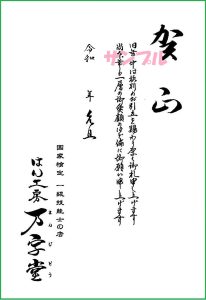 賀正
サンプル
旧年中は格別のお引立を賜わり厚く御礼申し上げます
尚本年も一層の御愛顧のほど偏に御願い申し上げます
令和　年　元旦
国家検定　一級技能士の店
はんこ家
万字堂
まんじどう